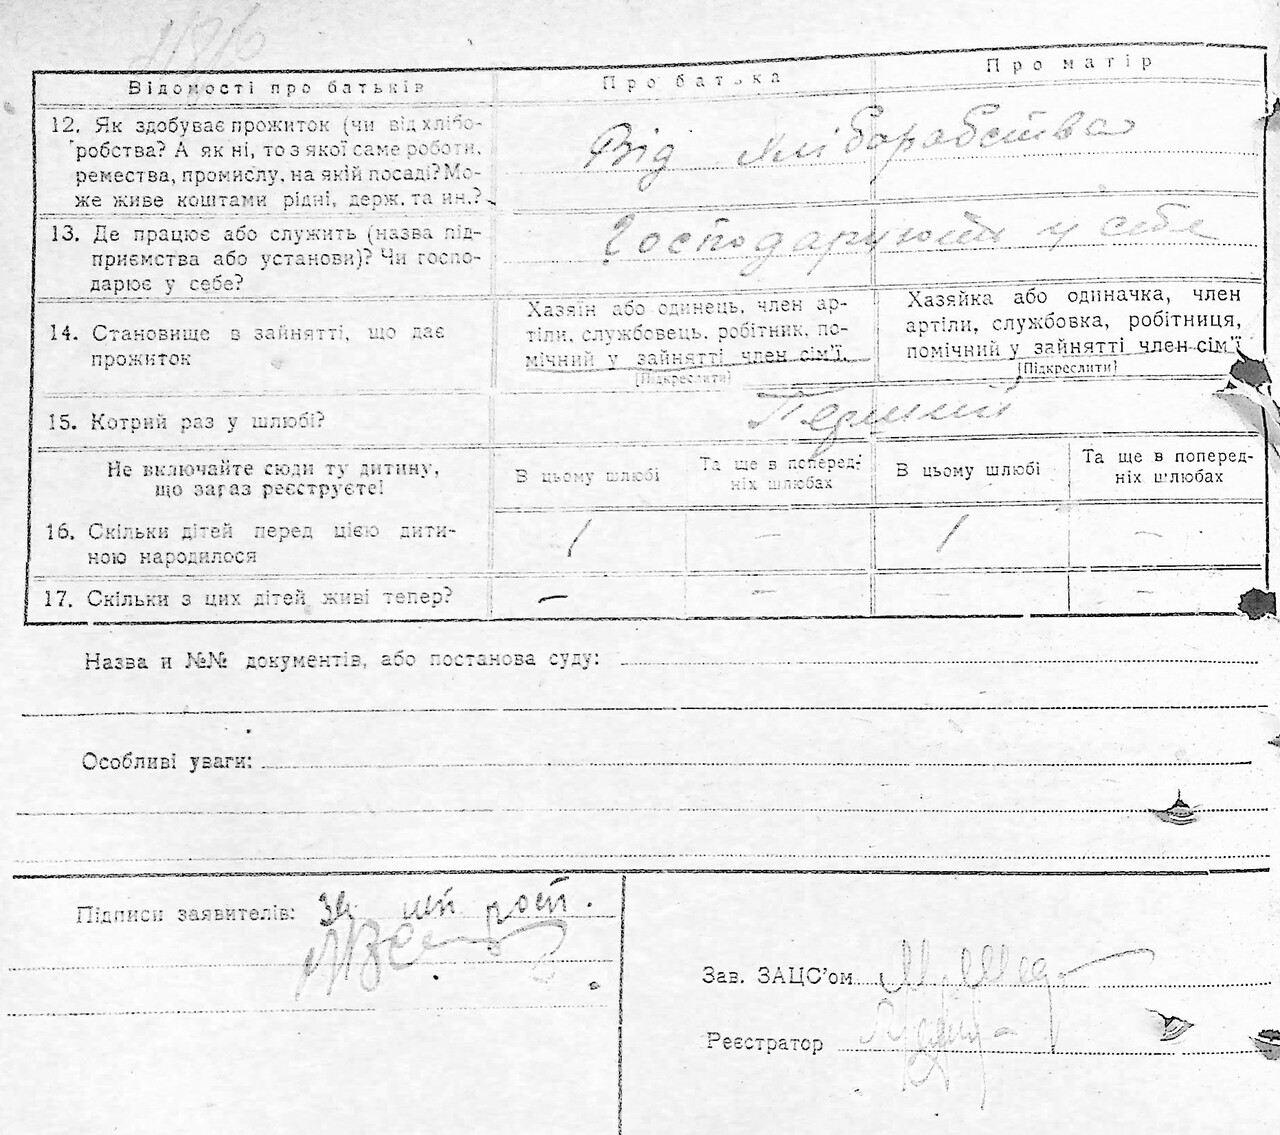 Відомості про батьків
Про батька
Про матір
12. Як здобуває прожиток (чи від хлібо-
робства? А як ні, то з якої саме роботи,
ремества, промислу, на якій посаді? Мо-
же живе коштами рідні, держ. та ин.?
Від хліборобства
13. Де працює або служить (назва під-
приємства або установи)? Чи госпо-
дарює у себе?
Господарують у себе
14. Становище в зайнятті, що дає
прожиток
Хазяїн або одинець, член ар-
тіли, службовець, робітник, по-
мічний у зайнятті член сім'ї.
[Підкреслити]
Хазяйка або одиначка, член
артіли, службовка, робітниця,
помічний у зайнятті член сім'ї
[Підкреслити]
15. Котрий раз у шлюбі?
Перший
Не включайте сюди ту дитину,
що зараз реєструєте!
В цьому шлюбі
Та ще в поперед-
ніх шлюбах
В цьому шлюбі
Та ще в поперед-
ніх шлюбах
16. Скільки дітей перед цією дити-
ною народилося
1 — 1 —
17. Скільки з цих дітей живі тепер?
— — — —
Назва и №№ документів, або постанова суду:
Особливі уваги:
Підписи заявителів:
Зав. ЗАЦС'ом
Реєстратор